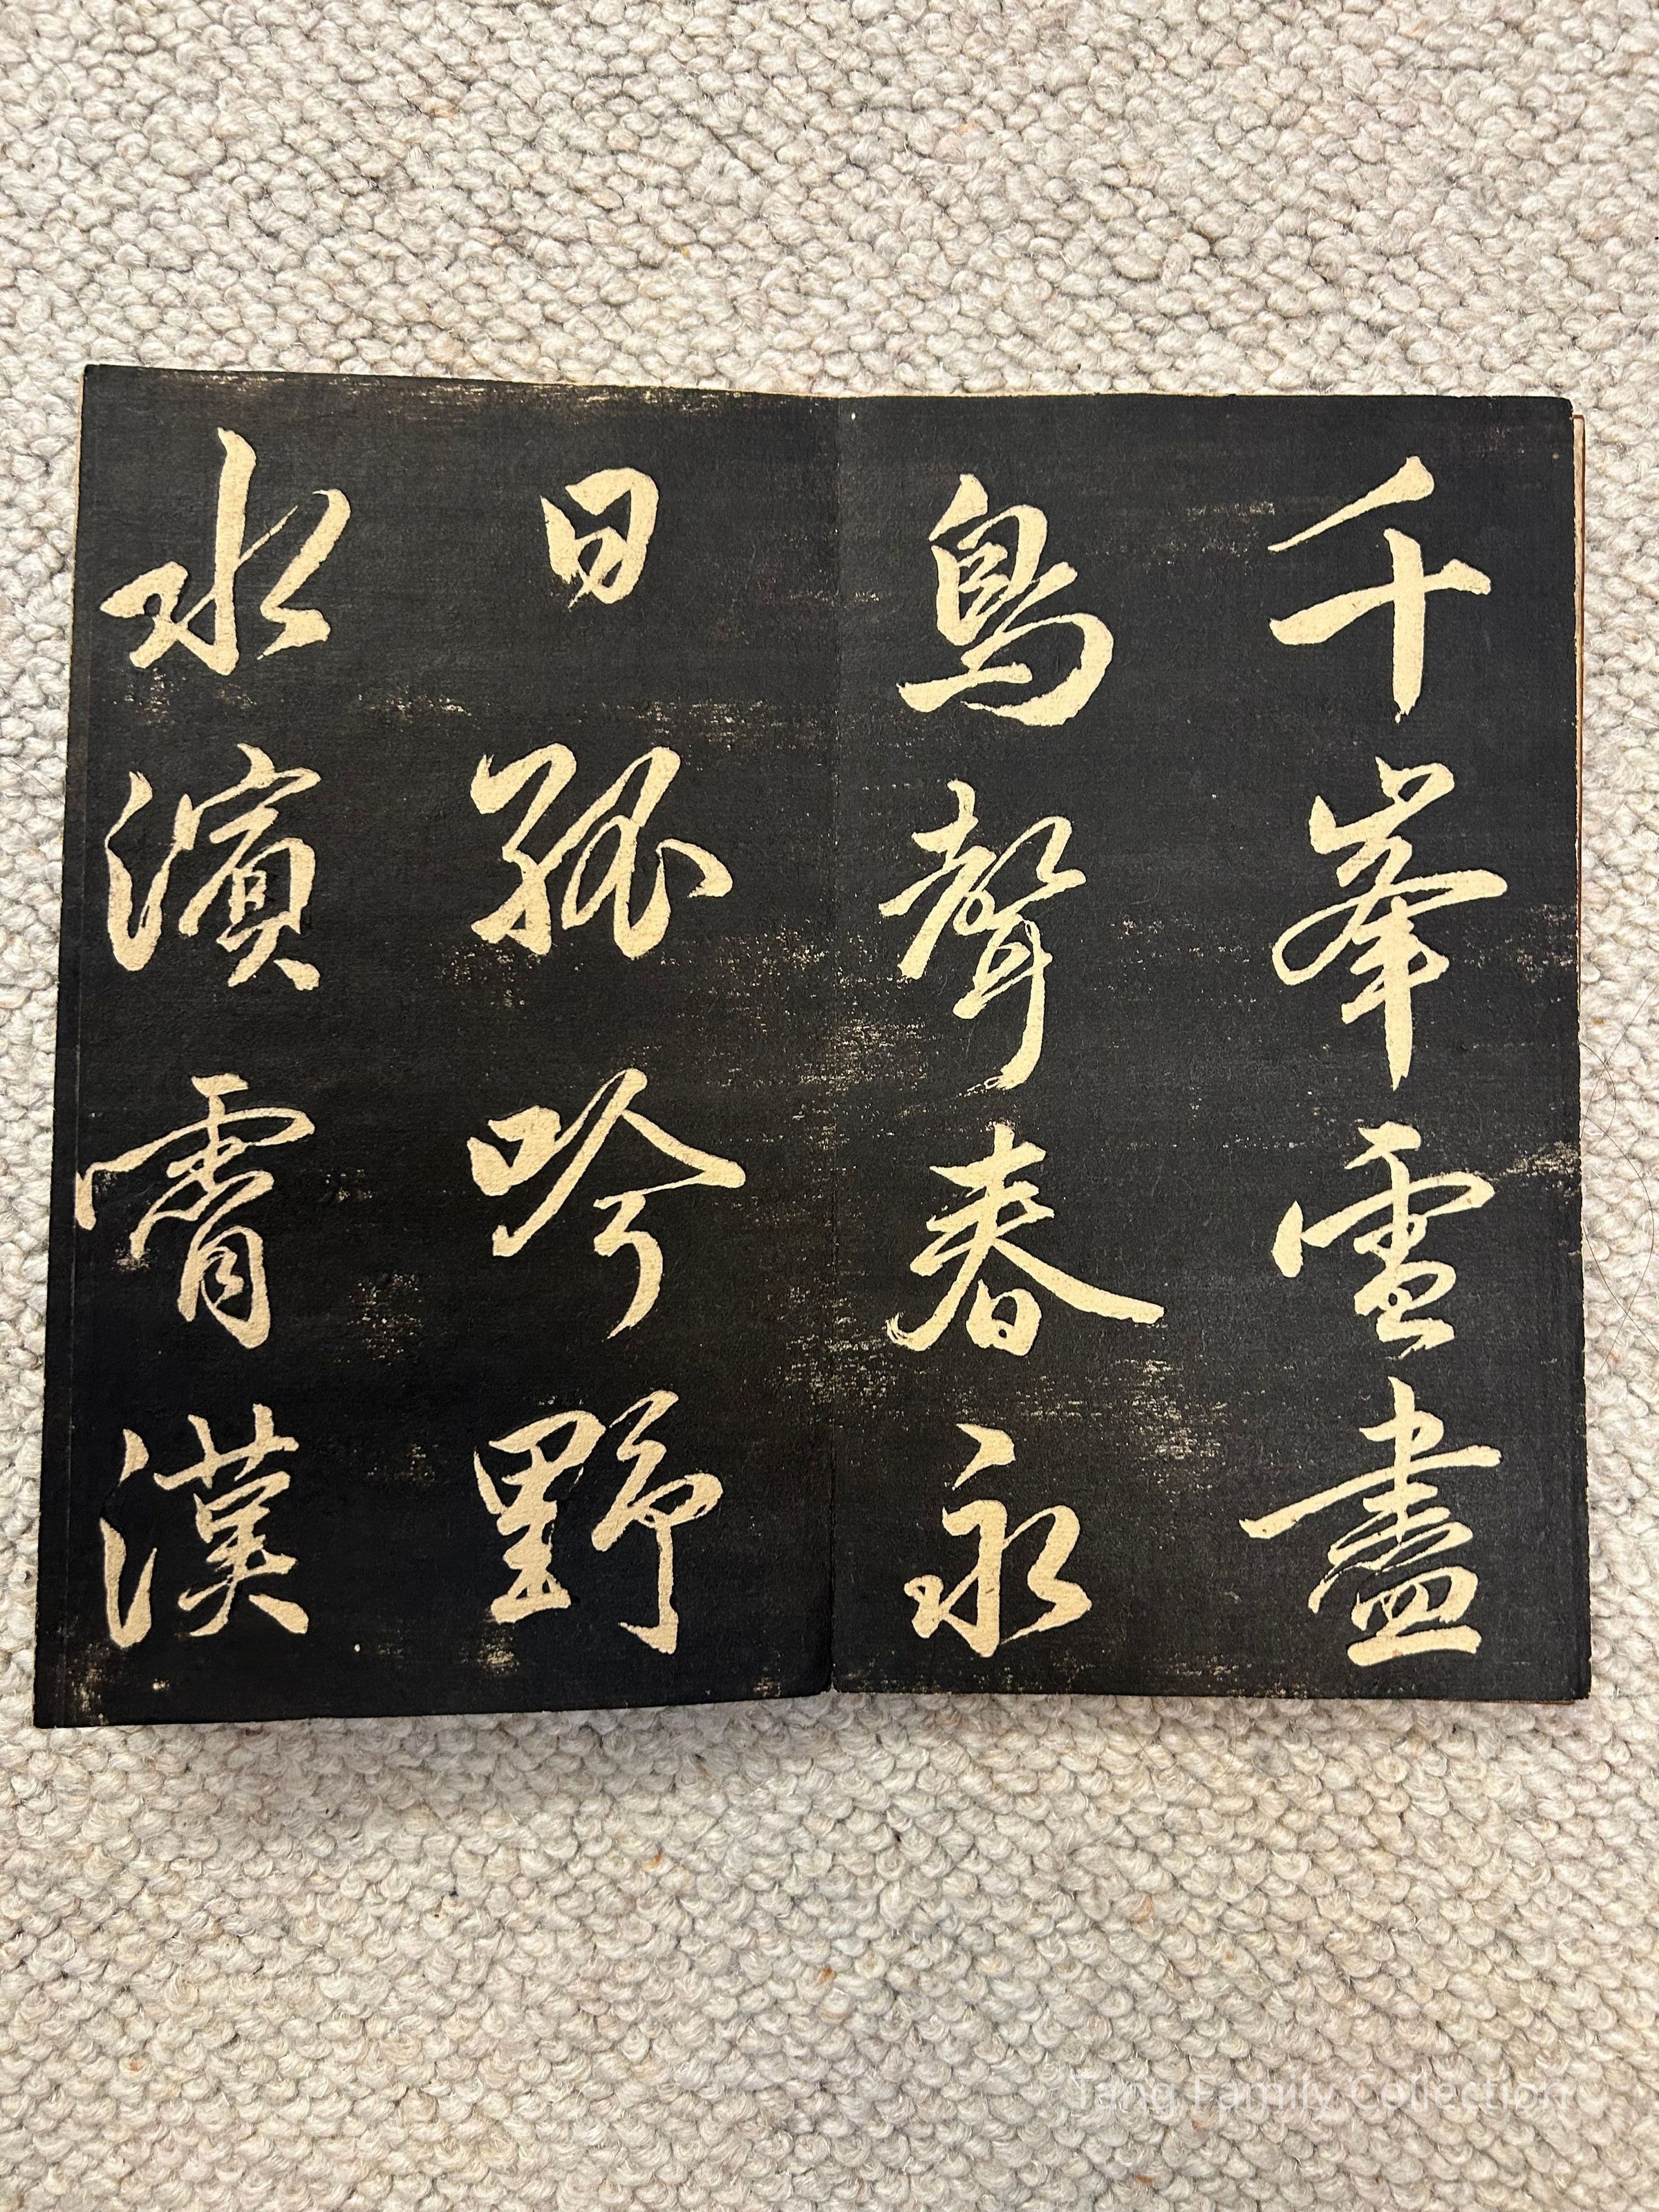 千峯雪盡
鳥聲春永
日孤吟野
水濱霄漢
Tang Family Collection